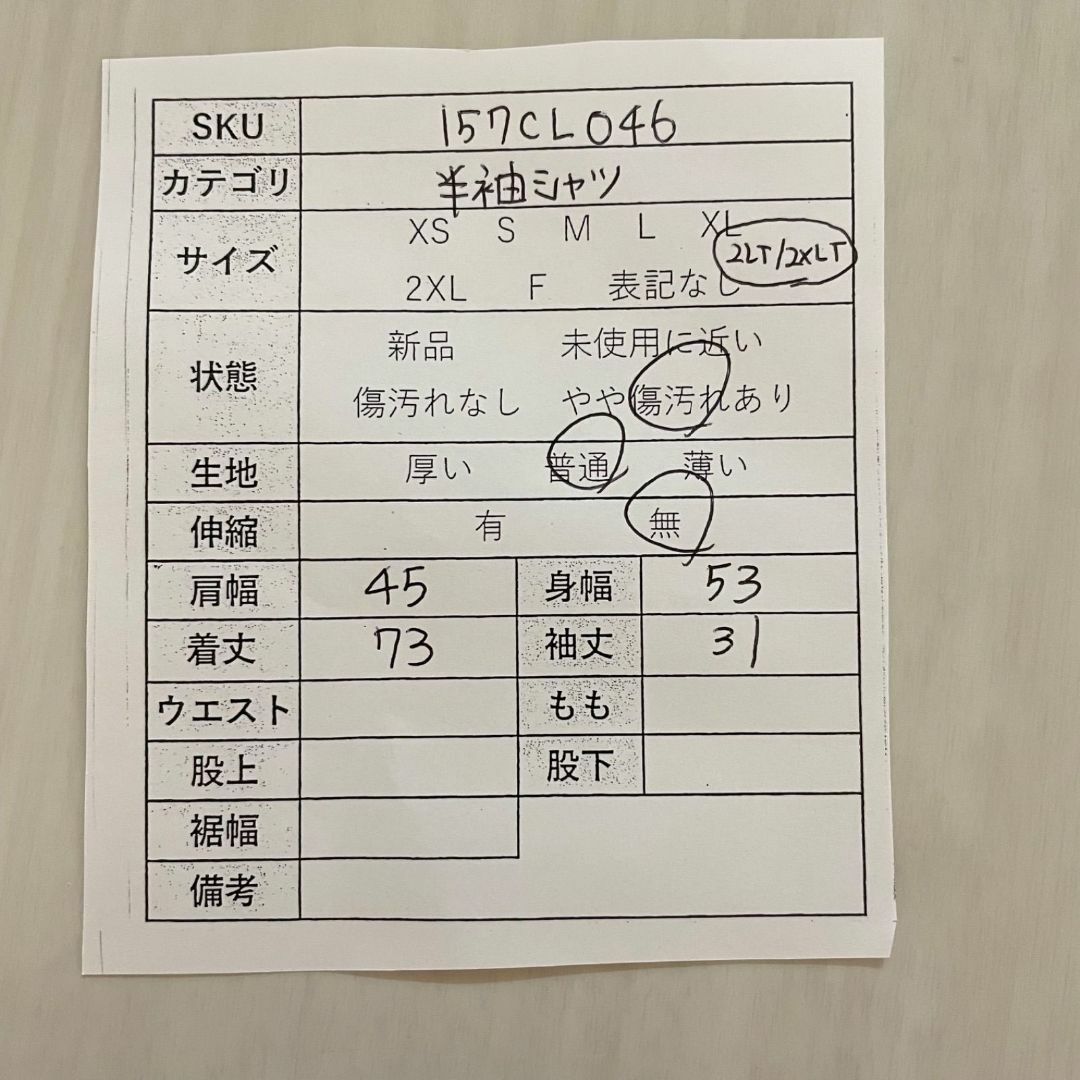 SKU 157CL046
カテゴリ 半袖シャツ
サイズ XS S M L XL
2LT/2XLT
2XL F 表記なし
状態 新品 未使用に近い
傷汚れなし やや傷汚れあり
生地 厚い 普通 薄い
伸縮 有 無
肩幅 45 身幅 53
着丈 73 袖丈 31
ウエスト もも
股上 股下
裾幅
備考